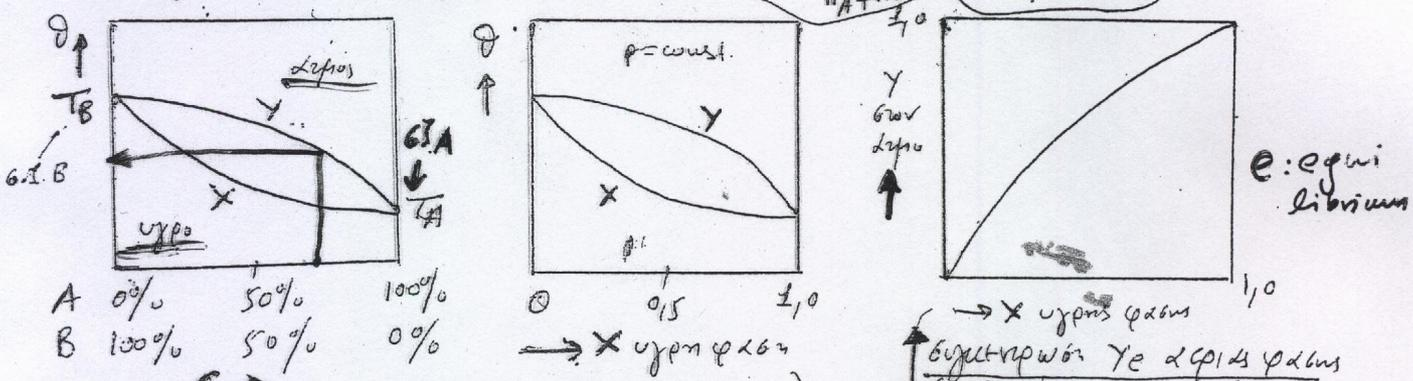 1,0
θ
αέριος
T_B
σ.ζ. B
Y
X
υγρο
σ.ζ. A
T_A
A 0% 50% 100%
B 100% 50% 0%
θ
p=const.
Y
X
0 0,5 1,0
→ X υγρη φαση
Y
στον
αέριο
e: equi
librium
1,0
→ X υγρης φασης
συγκεντρωση Ye αεριας φασης